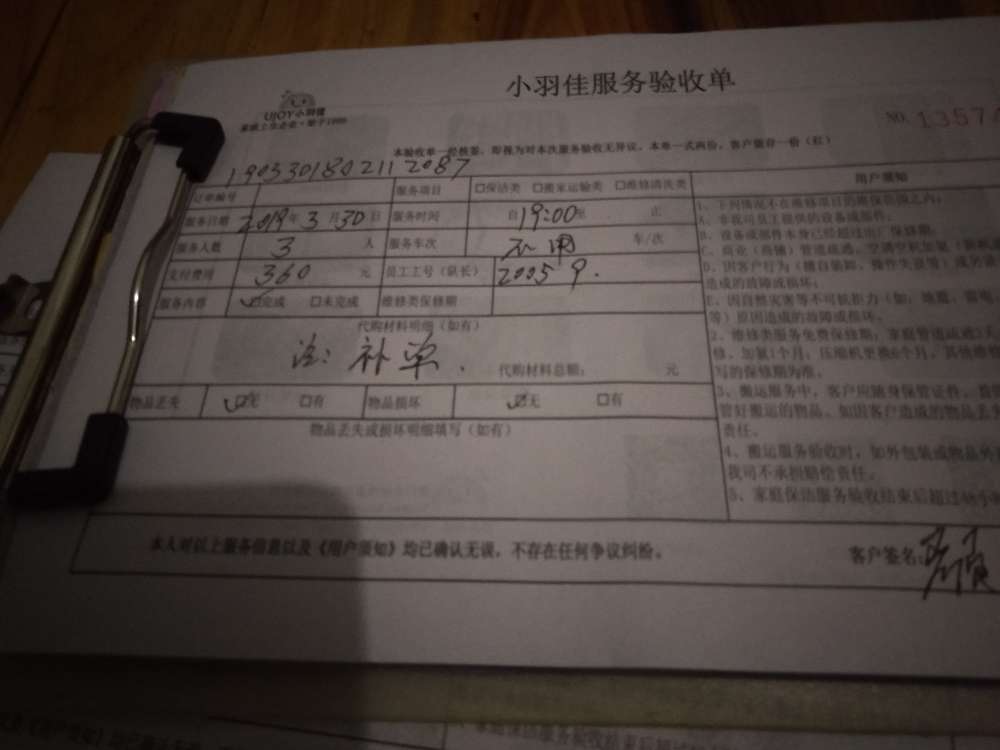 小羽佳服务验收单
UJOY小羽佳
家政上市企业·始于1999
NO. 13574
本验收单一经核签，即视为对本次服务验收无异议，本单一式两份，客户留存一份（红）
1903301802112087
订单编号 服务项目 □保洁类 □搬家运输类 □维修清洗类
服务日期 2019年3月30日 服务时间 自19:00至 止
服务人数 3 人 服务车次 不用 车/次
支付费用 360 元 员工工号（队长） 20059.
服务内容 ☑完成 □未完成 维修类保修期
代购材料明细（如有）
注：补单.
代购材料总额： 元
物品丢失 ☑无 □有 物品损坏 ☑无 □有
物品丢失或损坏明细填写（如有）
用户须知
1、下列情况不在维修项目的质保范围之内：
A、非我司员工提供的设备或部件；
B、设备或部件本身已经超过出厂保修期；
C、商业（商铺）管道疏通、空调空机加氟
D、因客户行为（擅自装卸、操作失误等）或
造成的故障或损坏；
E、因自然灾害等不可抗拒力（如：地震、雷电
等）原因造成的故障或损坏。
2、维修类服务免费保修期：家庭管道疏通
修、加氟1个月；压缩机更换6个月，其他维修
写的保修期为准。
3、搬运服务中，客户应随身保管证件、
管好搬运的物品。如因客户造成的物品丢
责任。
4、搬运服务验收时，如外包装或物品外
我司不承担赔偿责任。
5、家庭保洁服务验收结束后超过
本人对以上服务信息以及《用户须知》均已确认无误，不存在任何争议纠纷。
客户签名：